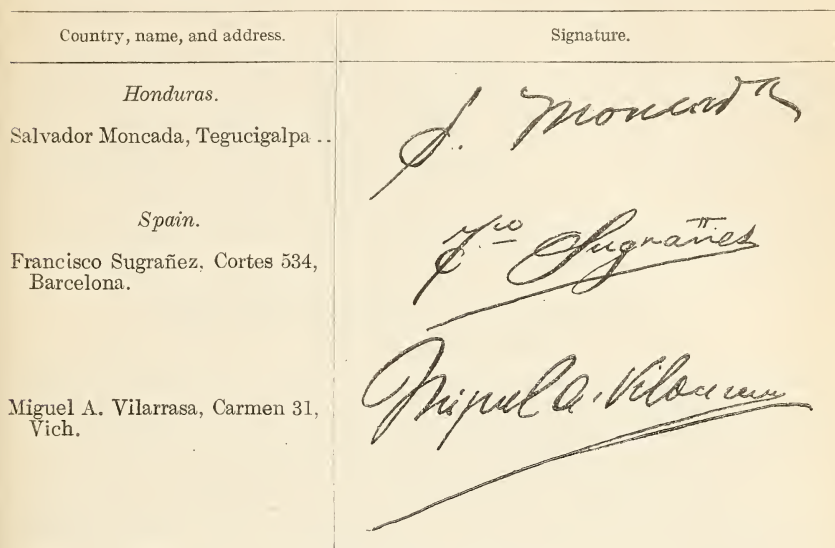 Country, name, and address. Signature.
Honduras.
Salvador Moncada, Tegucigalpa .. S. Moncada
Spain.
Francisco Sugrañez, Cortes 534, Fco Sugrañes
Barcelona.
Miguel A. Vilarrasa, Carmen 31, Miguel A.
Vich.